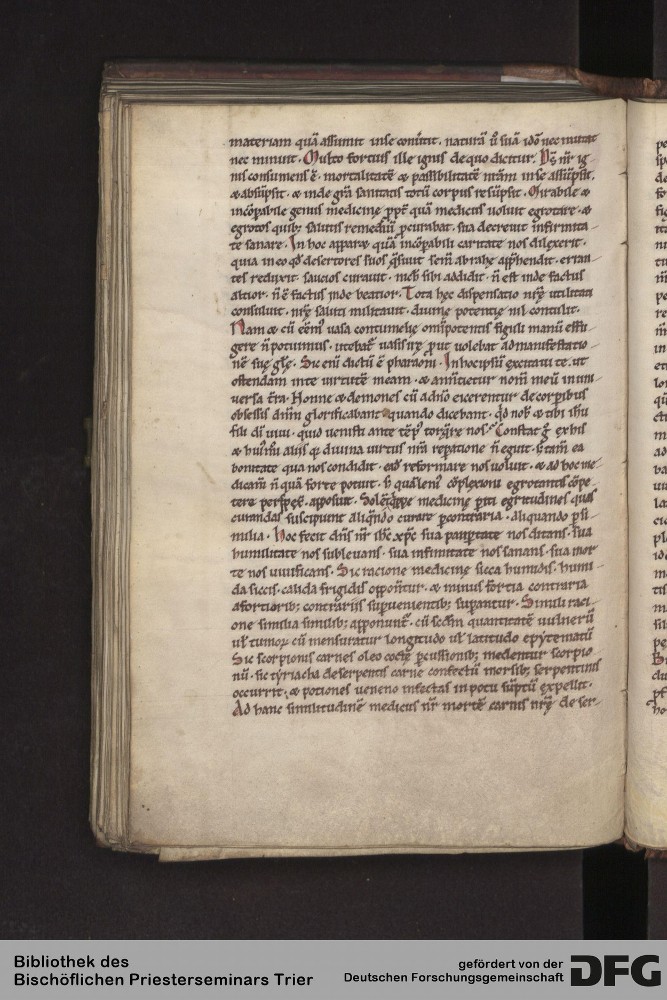 materiam quā assumit in se convertit. naturā ū suā idō nec mutat
nec minuit. Multo fortius ille ignis de quo dicitur. Ds̄ nr̄ ig
nis consumens ē. mortalitatē & passibilitatē nrām in se assūpsit.
& absūpsit. & inde grā sanitatis totū corpus resūpsit. Mirabile &
incōpabile genus medicinę ppt̄ quā medicus voluit egrotare. &
egrotos quib; salutis remediū pcurabat. sua decrevit infirmita
te sanare. In hoc apparꝫ quā incōpabili caritate nos dilexerit.
quia in eo qd̄ desertores suos q̄sivit sem̄ abrahę app̄hendit. erran
tes reduxit. saucios curavit. nich sibi addidit. n̄ est inde factus
altior. n̄ ē factus inde beatior. Tota hęc dispensatio nr̄ę utilitati
consuluit. nr̄ę saluti militavit. divinę potentię nil contulit.
Nam & cū eēm; vasa contumelię omīpotentis figuli manū effu
gere n̄ potuimus. utebat̄ vasis prout volebat ad manifestatio
nē suę glę. Sic enī dictū ē pharaoni. In hoc ipsū excitavi te. ut
ostendam in te virtutē meam. & annūcietur nom̄ meū in uni
versa t̄ra. Nonne & demones cū a dnō eicerentur de corpibus
obsessis dnm̄ glorificabant quando dicebant. Qd̄ nob & tibi ihu
fili dī vivi. quid venisti ante tēp torq̄re nos. Constat ġ ex his
& aliis qꝫ divina virtus nrā repatione n̄ eguit. tam ea
bonitate qua nos condidit. eadē reformare nos voluit. & ad hoc
dicam n̄ quā forte potuit. complexioni egrotantis cōpe
tere apposuit. medicinę piti egritudines quas
curandas suscipiunt aliqn̄do curare p contraria. aliquando p si
milia. hoc fecit dn̄s nr̄ ihc xpc sua paupertate nos ditans. sua
humilitate nos sublevans. sua infirmitate nos sanans. sua mor
te nos vivificans. Sic racione medicinę sicca humidis. humi
da siccis. calida frigidis opponūtur. & minus fortia contraria
a fortiorib; contrariis supvenientib; supantur. Simili raci
one similia similib; apponunt̄. cū scdm quantitatē vulnerū
ul tumorꝝ cū mensuratur longitudo ul latitudo epytematū
Sic scorpionis carnes oleo coctę pcussionib; medentur scorpio
nū. sic tyriacha de serpentis carne confectū morsib; serpentinis
occurrit. & potiones veneno infectas in potu sūptū expellit.
Ad hanc similitudinē medicus nr̄ mortē carnis nr̄ę de ser
Bibliothek des
Bischöflichen Priesterseminars Trier
gefördert von der
Deutschen Forschungsgemeinschaft
DFG